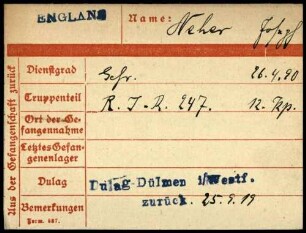 ENGLAND
Name: Neher Josepf
Aus der Gefangenschaft zurück
Dienstgrad Gefr. 26.4.90
Truppenteil R. I. R. 247. 12. Kp.
Ort der Ge-
fangennahme
Letztes Gefan-
genenlager
Dulag Dulag-Dülmen i/Westf.
Bemerkungen zurück. 25.9.19
Form. 687.